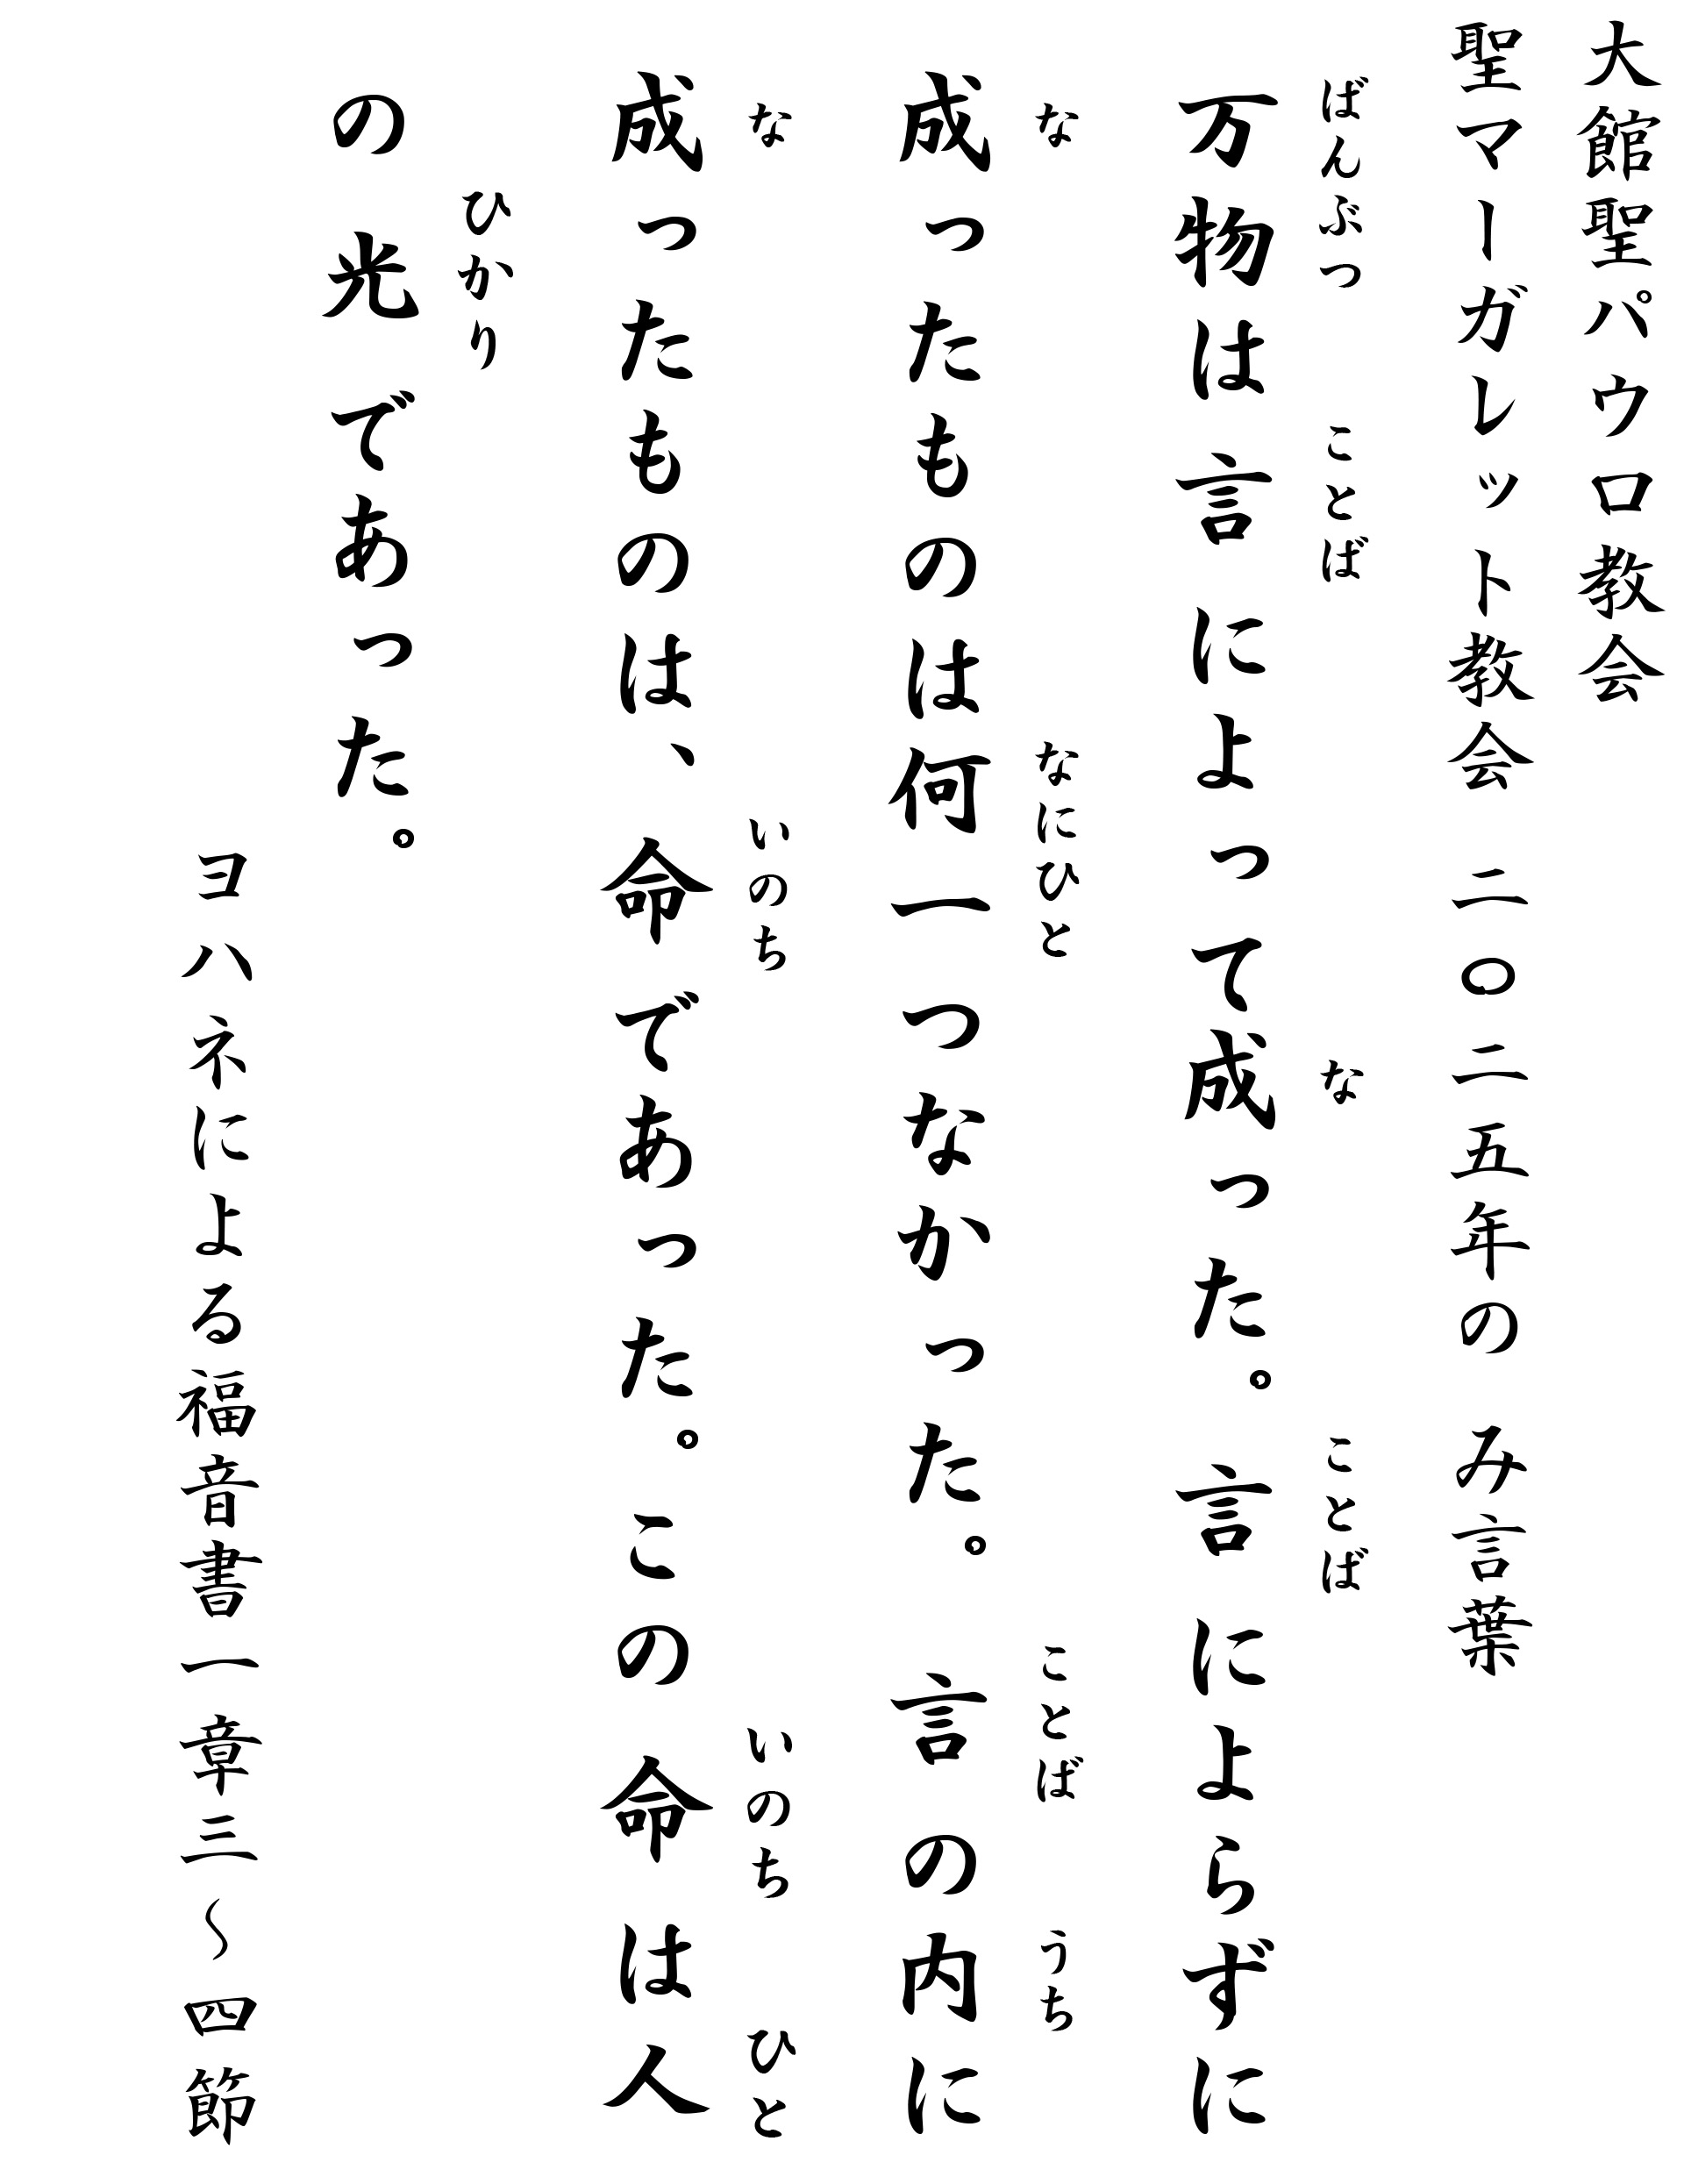 大館聖パウロ教会
聖マーガレット教会　二〇二五年の　み言葉
ばんぶつ　ことば　な　ことば
万物は言によって成った。言によらずに
な　なにひと　ことば　うち
成ったものは何一つなかった。言の内に
な　いのち　いのち　ひと
成ったものは、命であった。この命は人
ひかり
の光であった。
ヨハネによる福音書一章三～四節